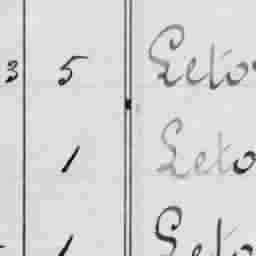 3 5 Leto
1 Leto
1 Leto